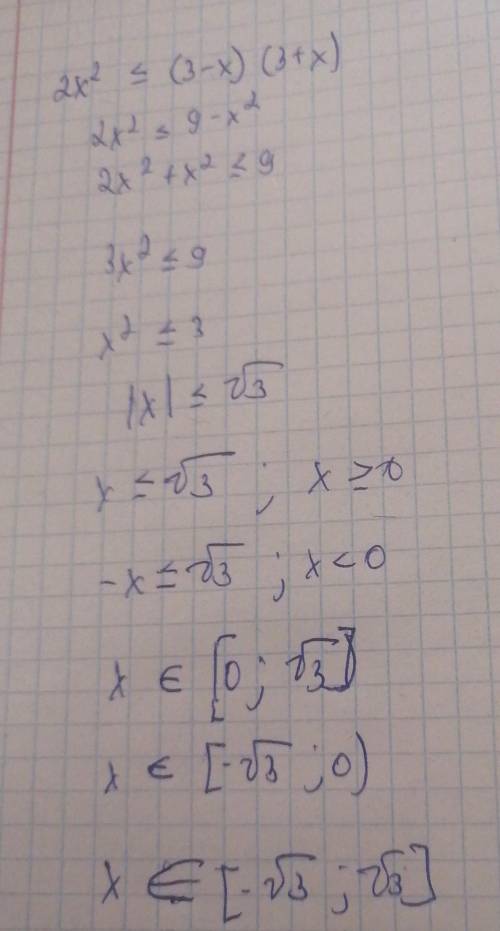 2x² ≤ (3-x) (3+x)
2x² ≤ 9-x²
2x²+x² ≤ 9
3x² ≤ 9
x² ≤ 3
|x| ≤ √3
x ≤ √3 ; x ≥ 0
-x ≤ √3 ; x < 0
x ∈ [0; √3]
x ∈ [-√3 ; 0)
x ∈ [-√3 ; √3]